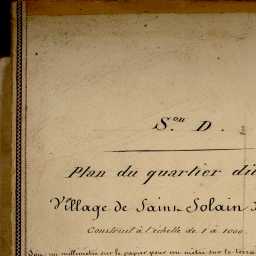 S.on D.
Plan du quartier di
Village de Saint Solain
Construit à l'échelle de 1 à 1000.
un millimètre sur le papier pour un mètre sur le terra